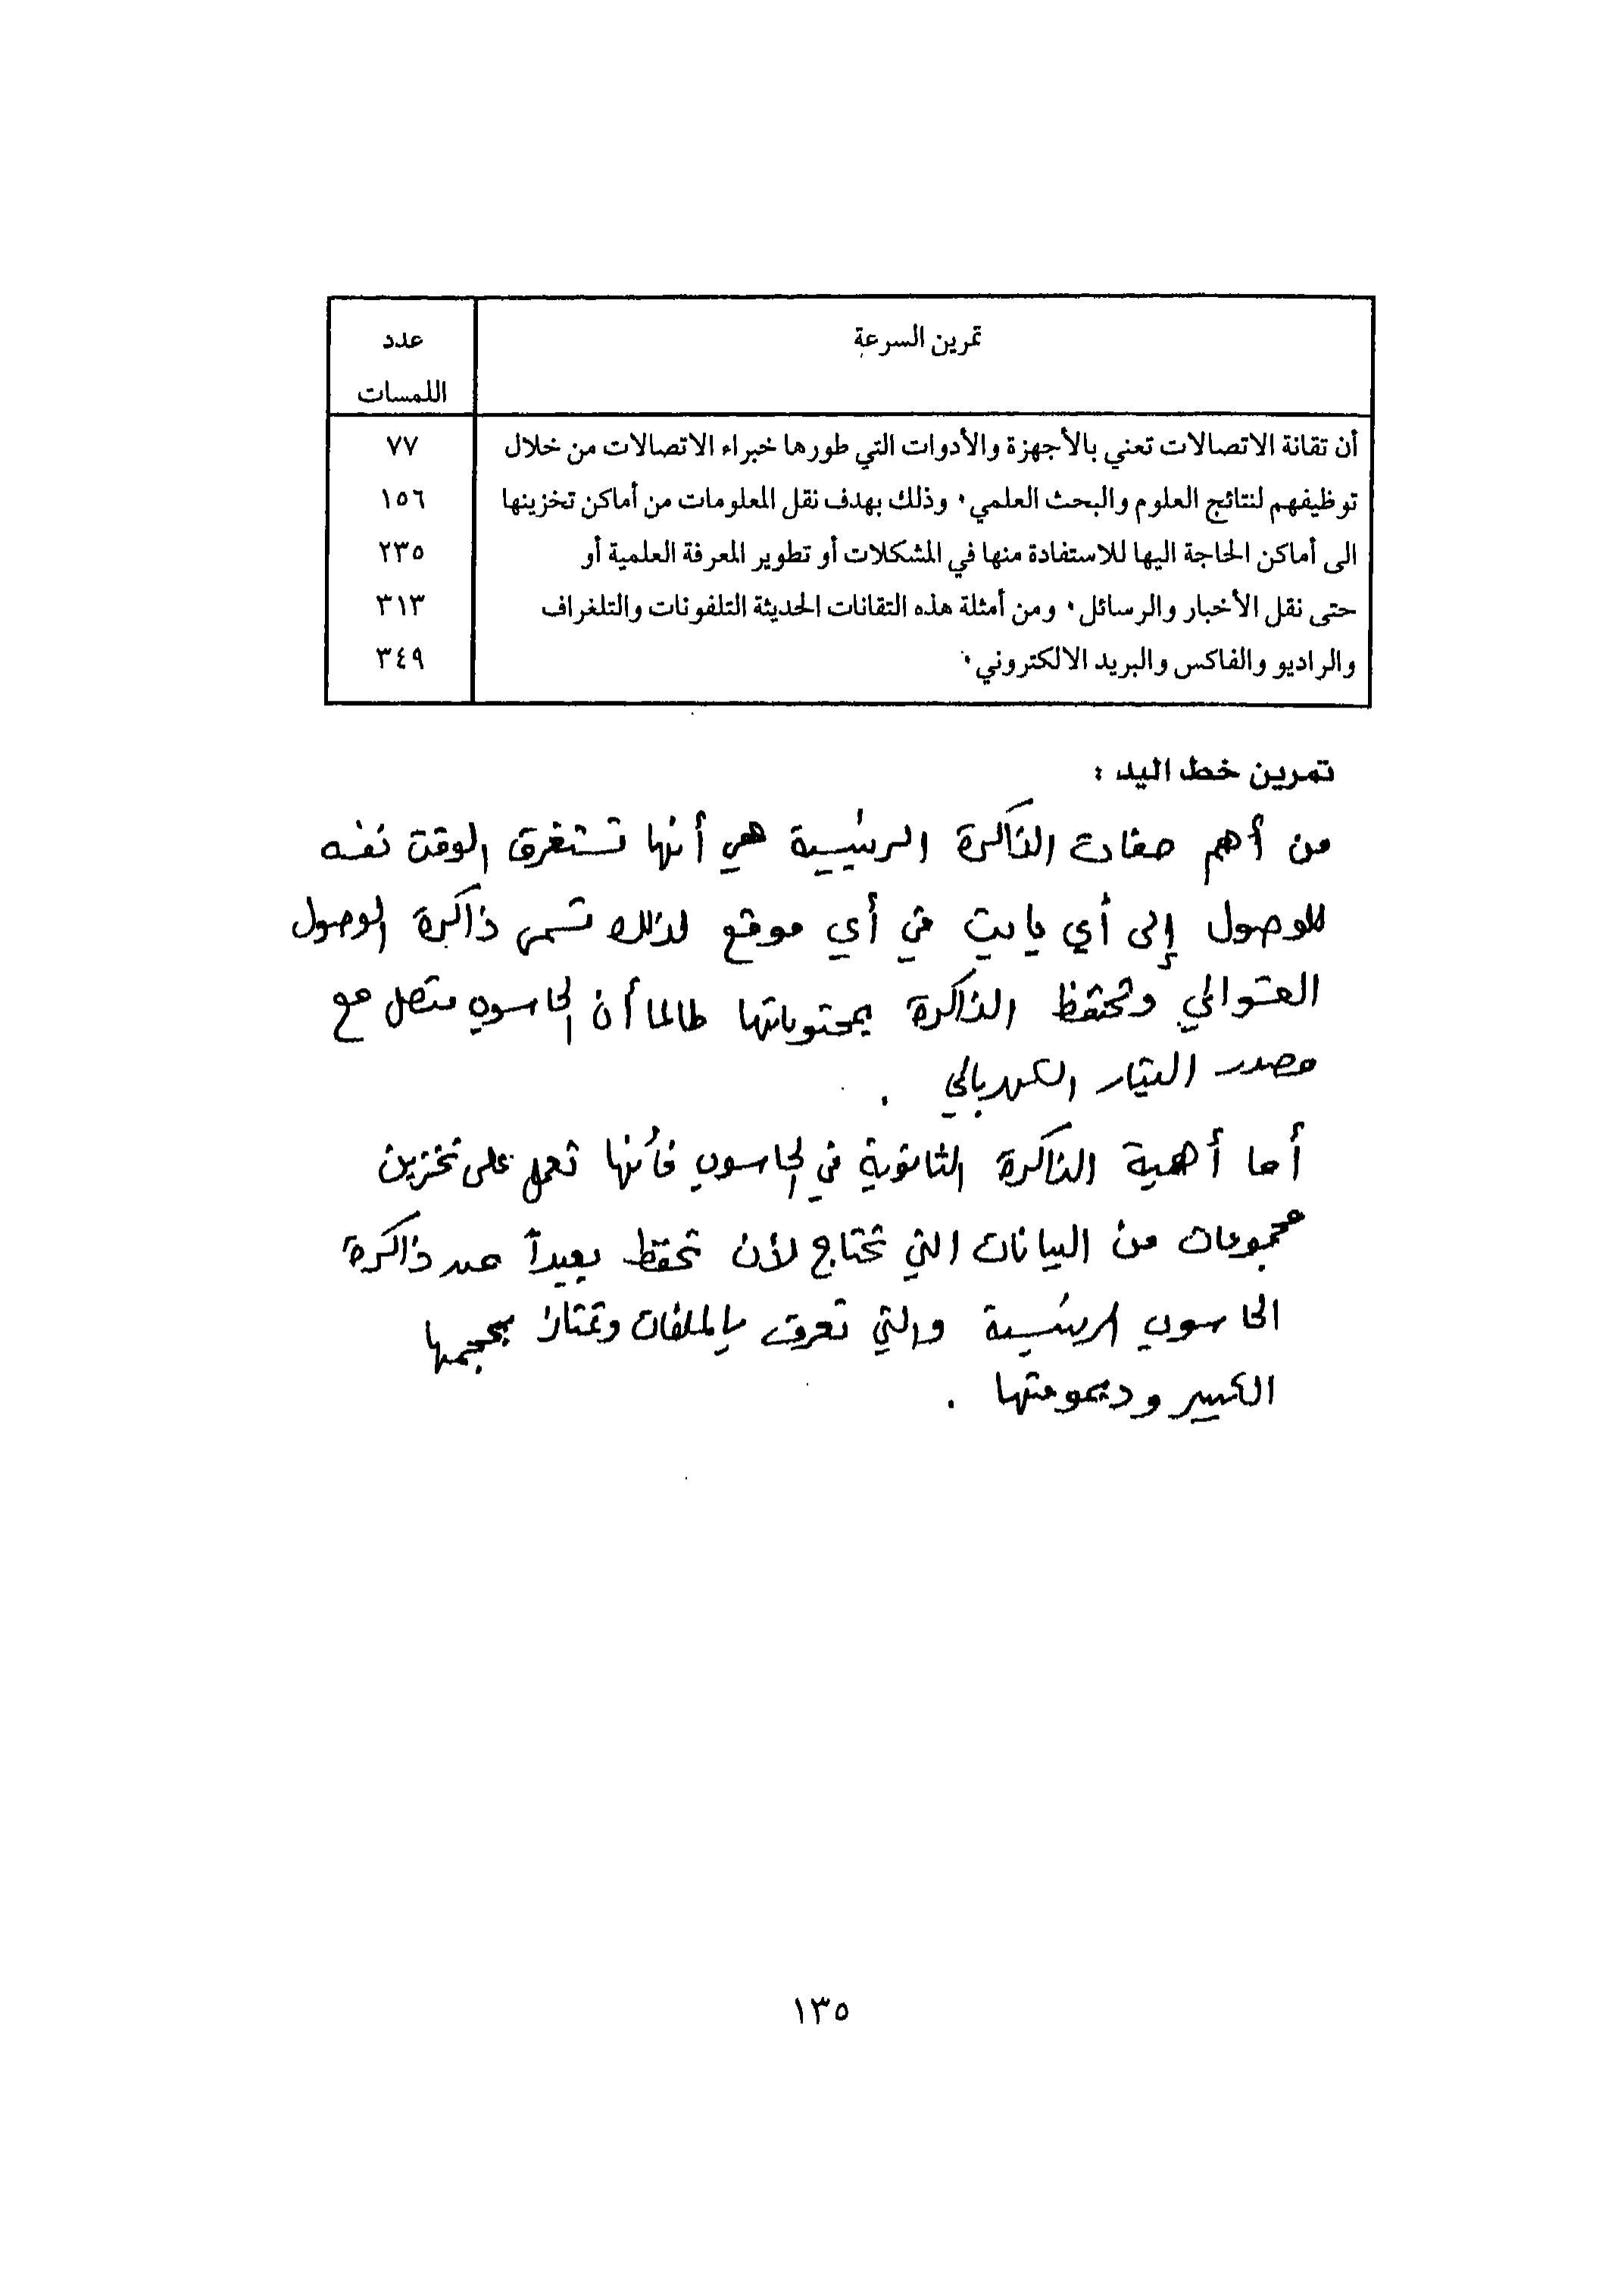 تمرين السرعة
عدد
اللمسات
أن تقانة الاتصالات تعني بالأجهزة والأدوات التي طورها خبراء الاتصالات من خلال ٧٧
توظيفهم لنتائج العلوم والبحث العلمي ٠ وذلك بهدف نقل المعلومات من أماكن تخزينها ١٥٦
الى أماكن الحاجة اليها للاستفادة منها في المشكلات أو تطوير المعرفة العلمية أو ٢٣٥
حتى نقل الأخبار والرسائل ٠ ومن أمثلة هذه التقانات الحديثة التلفونات والتلغراف ٣١٣
والراديو والفاكس والبريد الالكتروني ٠ ٣٤٩
تمرين خط اليد :
من أهم صفات الذاكرة الرئيسية هي أنها تستغرق الوقت نفسه
للوصول إلى أي بايت في أي موقع لذلك تسمى ذاكرة الوصول
العتوالي وتحتفظ الذاكرة بمحتوياتها طالما أن الحاسوب متصل مع
مصدر التيار الكهربائي .
أما أهمية الذاكرة الثانوية في الحاسوب فأنها تعمل على تخزين
مجموعات من البيانات التي تحتاج لأن تحفظ بعيداً عن ذاكرة
الحاسوب الرئيسية والتي تعرف بالملفات وتمتاز بحجمها
الكبير وديمومتها .
١٣٥